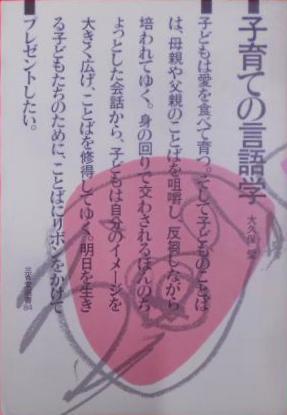 子育ての言語学
大久保 愛
子どもは愛を食べて育つ。そして子どものことば
は、母親や父親のことばを咀嚼し、反芻しながら
培われてゆく。身の回りで交わされるほんのち
ょっとした会話から、子どもは自分のイメージを
大きく広げ、ことばを修得してゆく。明日を生き
る子どもたちのために、ことばにリボンをかけて
プレゼントしたい。
三省堂選書84